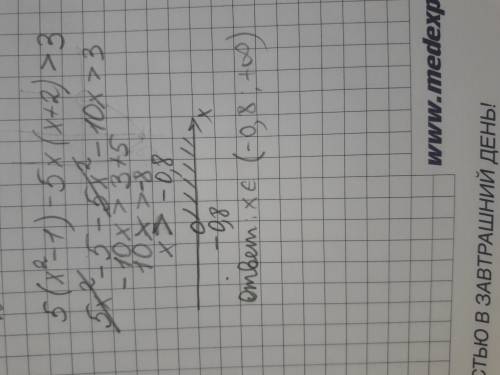 5(x²-1)-5x(x+2)>3
5x²-5-5x²-10x>3
-10x>3+5
10x>-8
x>-0,8
-0,8 x
ответ: x∈(-0,8; +∞)
www.medexp
СТЬЮ В ЗАВТРАШНИЙ ДЕНЬ!